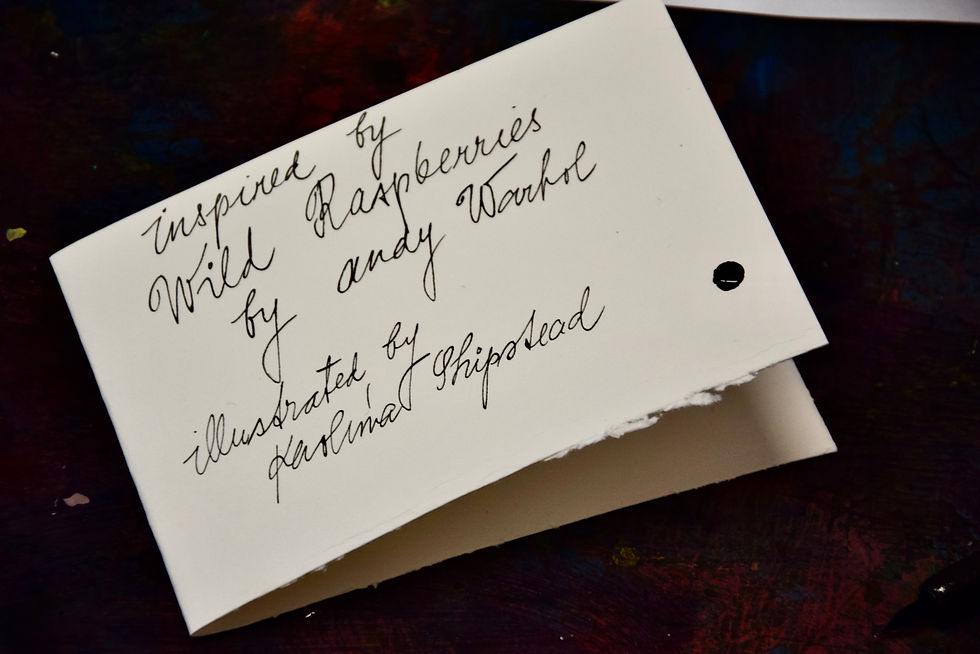 inspired by
Wild Raspberries
by andy Warhol
illustrated by
Karolina Shipstead